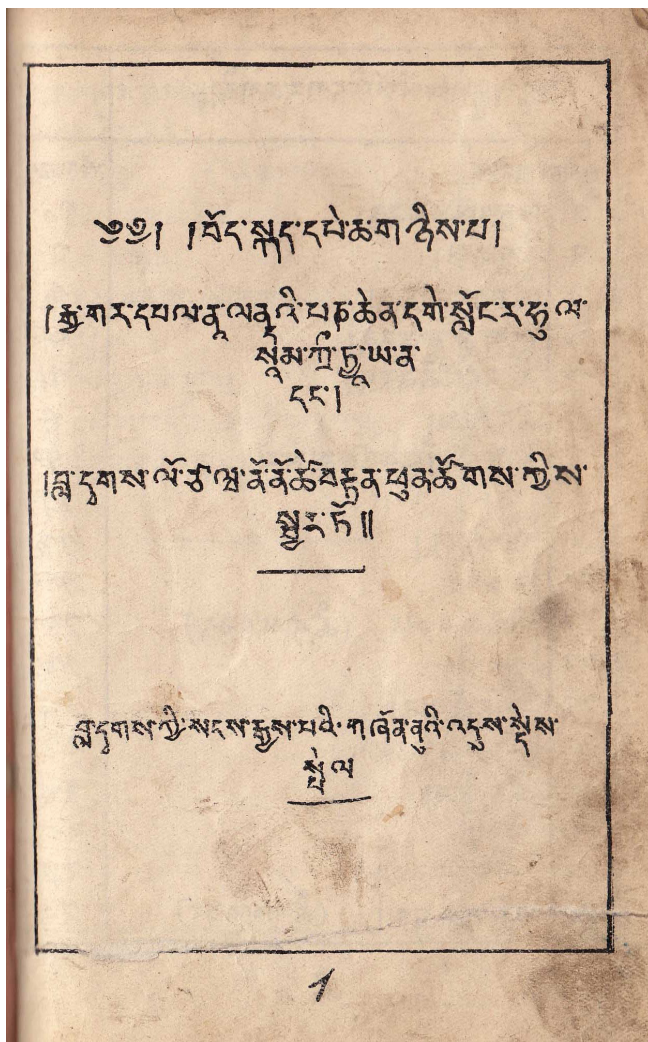 ༄༅། །བོད་སྐད་དཔེ་ཆ་གཉིས་པ།
།རྒྱ་གར་དཔལ་ནཱ་ལནྡའི་པཎ་ཆེན་དགེ་སློང་ར་ཧུ་ལ་
སཱྀམ་ཀྲྀ་ཏྱཱ་ཡ་ན་
དང་།
།བླ་དྭགས་ལོ་ཙཱ་བ་ནོ་ནོ་ཚེ་བརྟན་ཕུན་ཚོགས་ཀྱིས་
སྦྱར་ཏོ༎
བླ་དྭགས་ཀྱི་སངས་རྒྱས་པའི་གཞོན་ནུའི་འདུས་སྡེས་
སྤེལ
1